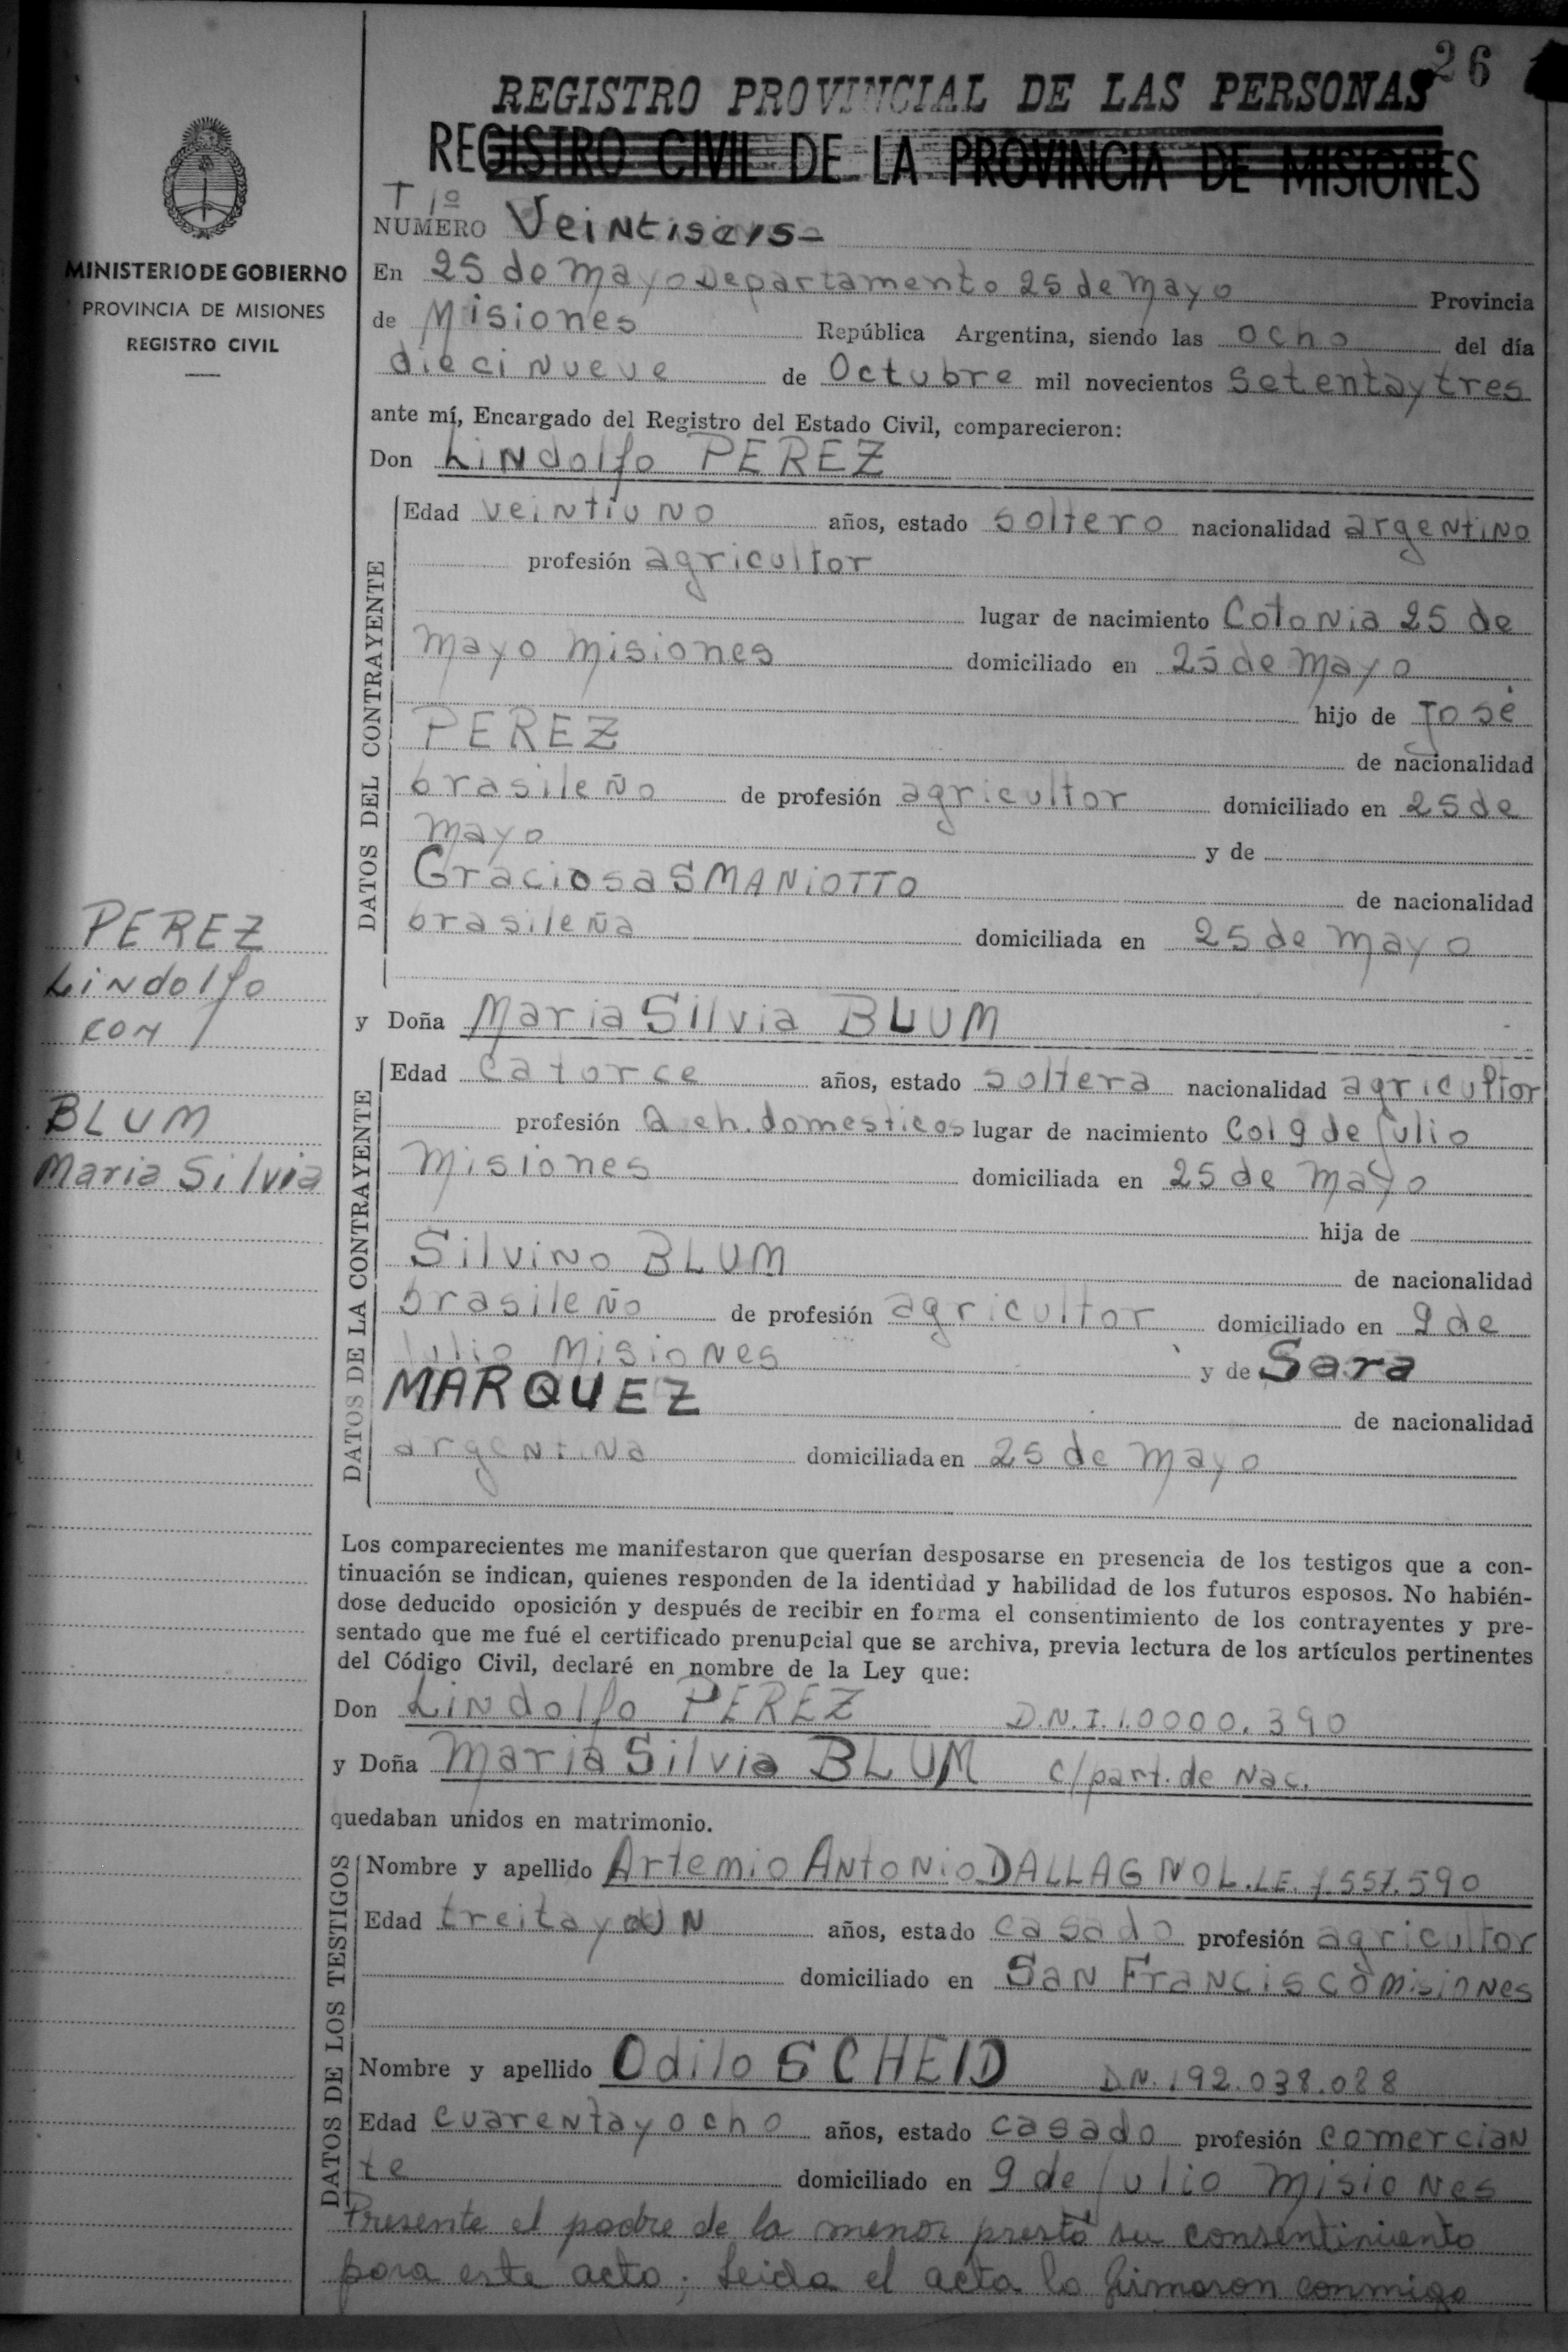 26
REGISTRO PROVINCIAL DE LAS PERSONAS
REGISTRO CIVIL DE LA PROVINCIA DE MISIONES
MINISTERIO DE GOBIERNO
PROVINCIA DE MISIONES
REGISTRO CIVIL
T 1º
NUMERO Veintiseis-
En 25 de Mayo Departamento 25 de Mayo Provincia
de Misiones República Argentina, siendo las ocho del día
diecinueve de Octubre mil novecientos setentaytres
ante mí, Encargado del Registro del Estado Civil, comparecieron:
Don Lindolfo PEREZ
DATOS DEL CONTRAYENTE
Edad veintiuno años, estado soltero nacionalidad argentino
profesión agricultor
lugar de nacimiento Colonia 25 de
Mayo Misiones domiciliado en 25 de Mayo
hijo de José
PEREZ de nacionalidad
brasileño de profesión agricultor domiciliado en 25 de
Mayo y de
Graciosa SMANIOTTO de nacionalidad
brasileña domiciliada en 25 de Mayo
PEREZ
Lindolfo
con
BLUM
Maria Silvia
y Doña Maria Silvia BLUM
DATOS DE LA CONTRAYENTE
Edad catorce años, estado soltera nacionalidad agricultor
profesión Q. eh. domesticos lugar de nacimiento Col 9 de Julio
Misiones domiciliada en 25 de Mayo
hija de
Silvino BLUM de nacionalidad
brasileño de profesión agricultor domiciliado en 9 de
Julio Misiones y de Sara
MARQUEZ de nacionalidad
argentina domiciliada en 25 de Mayo
Los comparecientes me manifestaron que querían desposarse en presencia de los testigos que a con-
tinuación se indican, quienes responden de la identidad y habilidad de los futuros esposos. No habién-
dose deducido oposición y después de recibir en forma el consentimiento de los contrayentes y pre-
sentado que me fué el certificado prenupcial que se archiva, previa lectura de los artículos pertinentes
del Código Civil, declaré en nombre de la Ley que:
Don Lindolfo PEREZ D.N.I. 10000.390
y Doña Maria Silvia BLUM c/part. de Nac.
quedaban unidos en matrimonio.
DATOS DE LOS TESTIGOS
Nombre y apellido Artemio Antonio DALLAGNOL. L.E. 7.557.590
Edad treitayun años, estado casado profesión agricultor
domiciliado en San Francisco Misiones
Nombre y apellido Odilo SCHEID D.N.I 92.038.088
Edad cuarentayocho años, estado casado profesión comercian
te domiciliado en 9 de Julio Misiones
Presente el padre de la menor prestó su consentimiento
para este acto; Leida el acta la firmaron conmigo